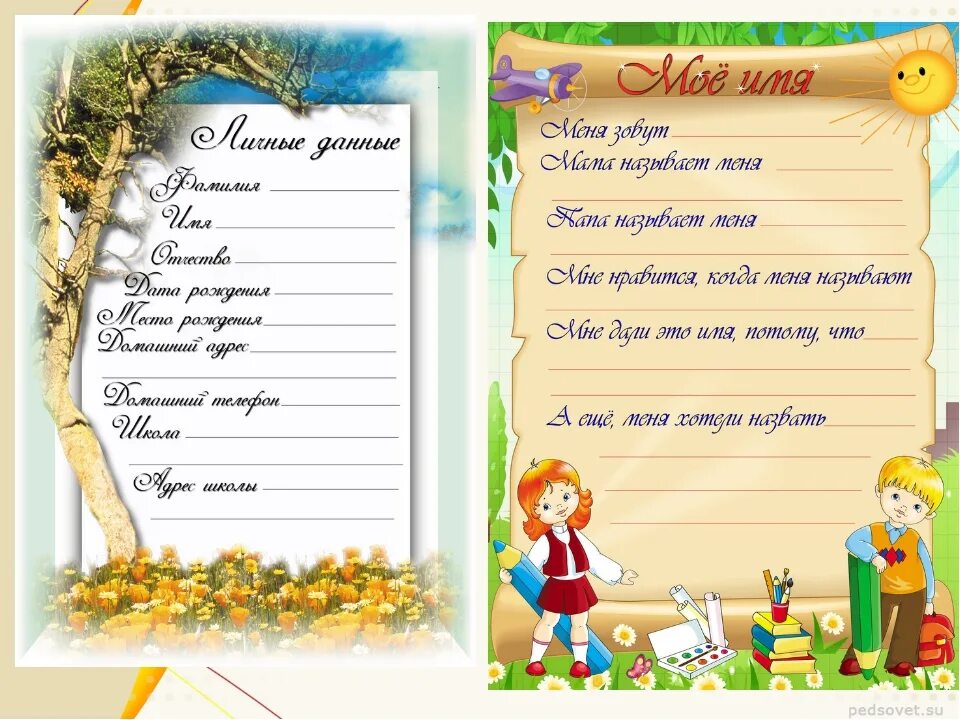 Личные данные
Фамилия
Имя
Отчество
Дата рождения
Место рождения
Домашний адрес
Домашний телефон
Школа
Адрес школы
Моё имя
Меня зовут
Мама называет меня
Папа называет меня
Мне нравится, когда меня называют
Мне дали это имя, потому, что
А ещё, меня хотели назвать
pedsovet.su